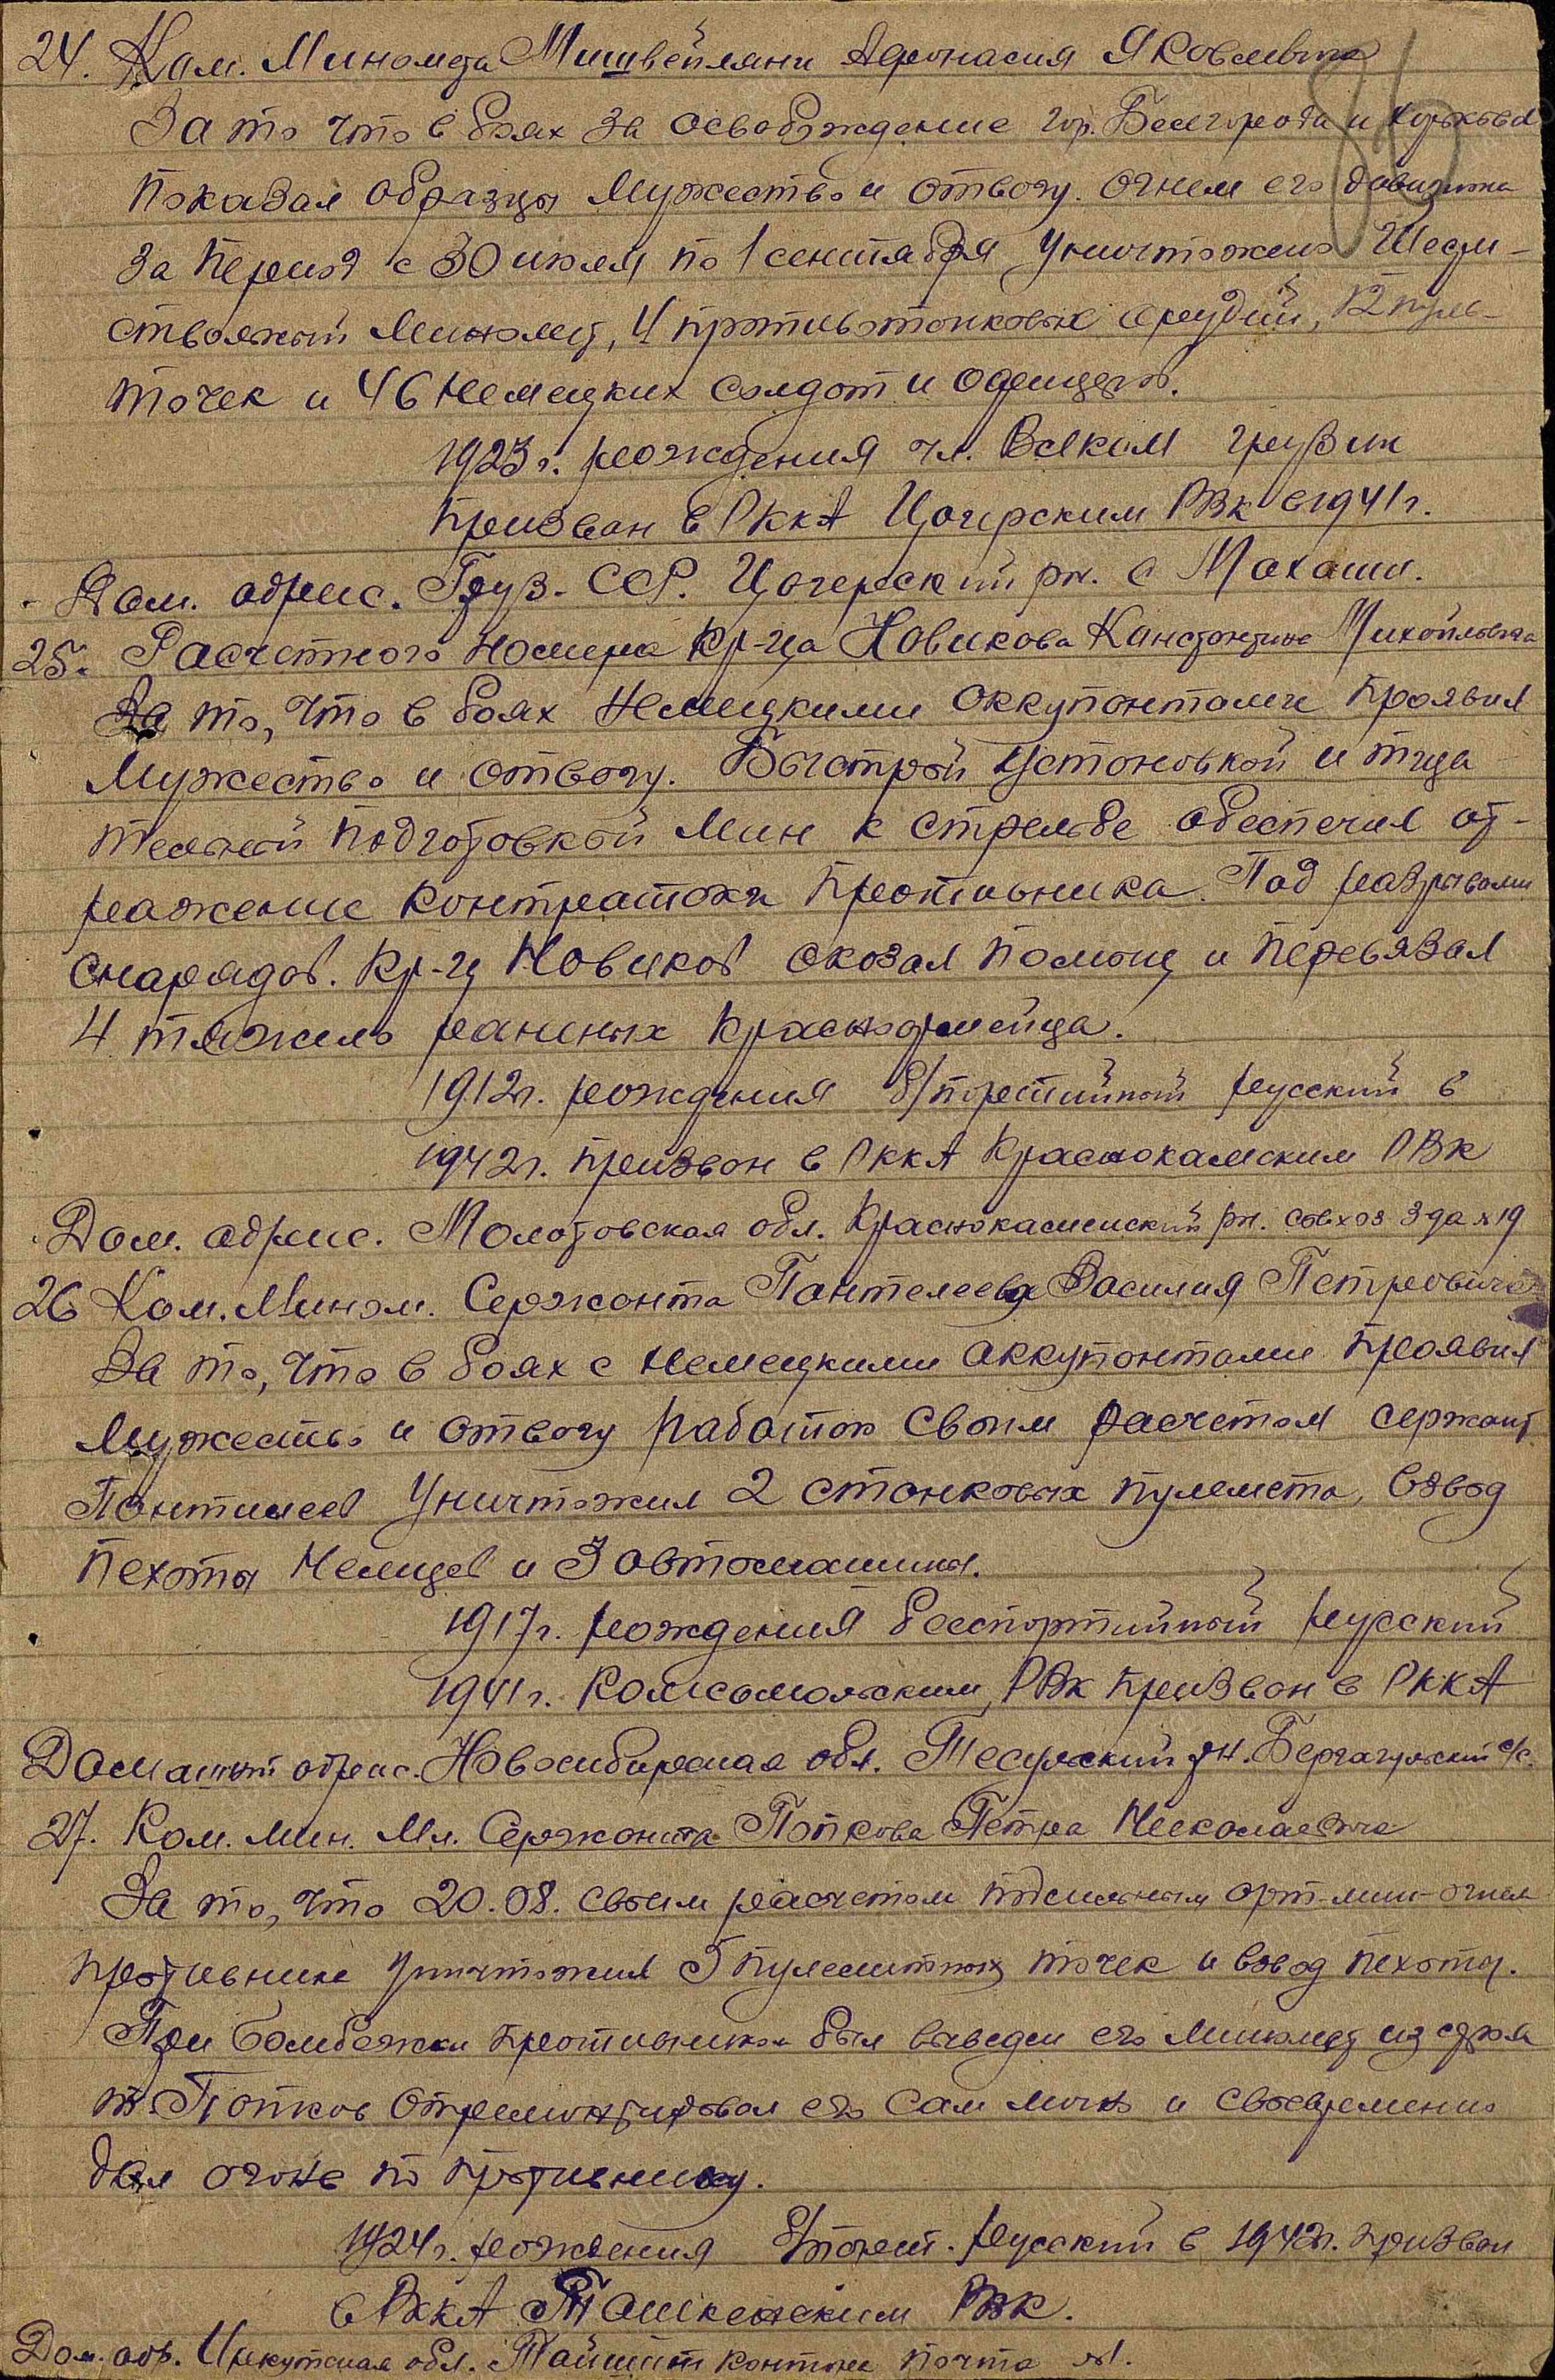 24. Ком. Миномета Мишвейляни Афонасия Яковлевича
86
За то что в боях за освобождение гор. Белгорода и Харькова
показал образцы мужество и отвогу. огнем его дивизиона
за период с 30 июля по 1 сентября уничтожено Шести-
ствольный миномет, 4 противотонковых орудий, 12 пуль-
точек и 46 немецких солдот и офицеров.
1923 г. рождения чл. Влксм грузин
призван в РККА Цагерским РВК в 1941 г.
Дом. адрес. Груз. ССР. Цагерский рн. с Махаши.
25. Расчетного номера кр-ца Новикова Констонтина Михойловича
За то, что в боях немецкими оккупонтоми проявил
мужество и отвогу. Быстрой устоновкой и тща
тельной подготовкой мин к стрельбе обеспечил от-
ражение контратоки противника. Под разрывами
снарядов. Кр-ц Новиков оказал помощ и перевязал
4 тяжело раненых красноормейца.
1912 г. рождения б/портийный русский в
1942 г. призвон в РККА Краснокамским РВК
Дом. адрес. Молотовская обл. Краснокаменский рн. совхоз зда № 19
26 Ком. Мином. Сержонта Пантелеева Василия Петровича
За то, что в боях с немецкими аккупонтоми проявил
мужество и отвогу работою своим расчетом сержонт
Понтилеев уничтожил 2 стонковых пулемета, взвод
пехоты Немцев и 3 овтомашины.
1917 г. рождения беспортийный русский
1941 г. Комсомольским РВК призвон в РККА
Домашний адрес. Новосибирская обл. Тесульский рн. Бергагульский с/с.
27. Ком. мин. Мл. Сержонта Попкова Петра Николаевича
За то, что 20.08. своим расчетом под сильным орт-мин-огнем
противника уничтожил 5 пулеметных точек и взвод пехоты.
При бомбежки противником был выведен его миномет из строя
т. Попков отремонтировал его сам лично и своевременно
дал огонь по противнику.
1924 г. рождения б/порт. русский в 1942 г. призвон
в РККА Ташкенским РВК.
Дом. адр. Иркутская обл. Тайшит контора почта